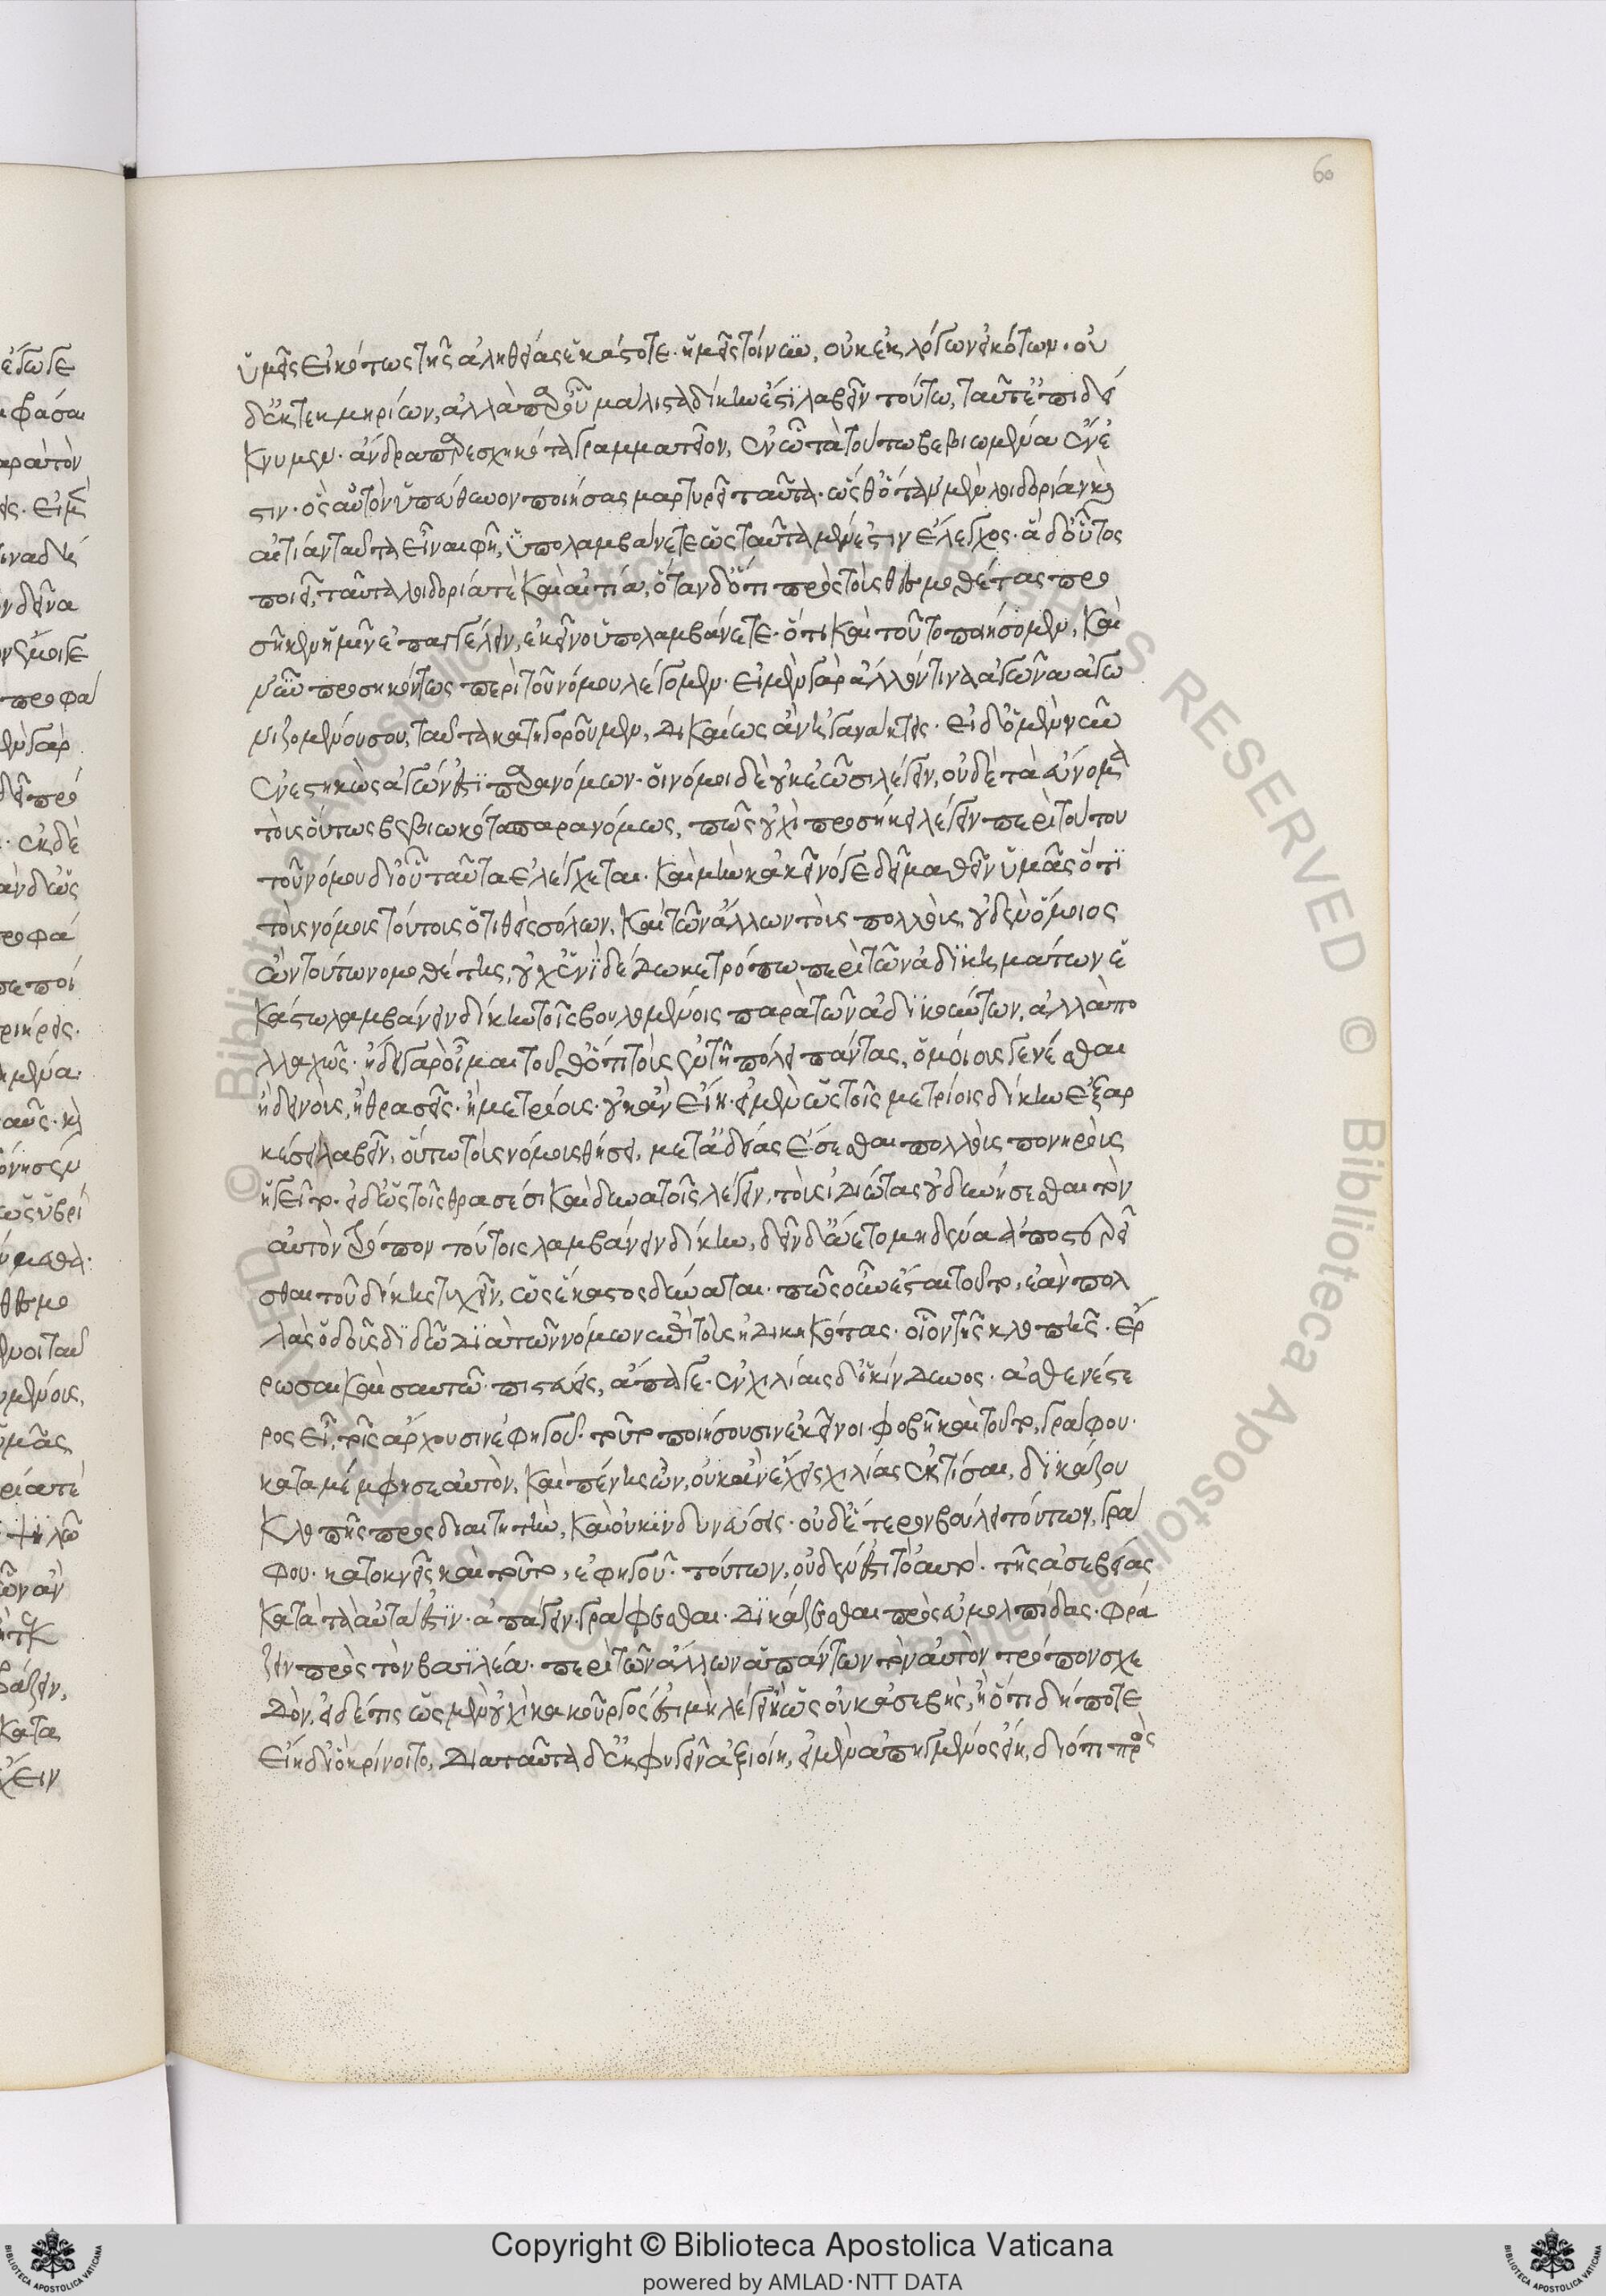 ὑμεῖς εἰκότως τῆς ἀληθείας ἑκάστοτε· ἡμεῖς τοίνυν, οὐκ ἐκ λόγων εἰκότων· οὐ
δὲ ἐκ τεκμηρίων, ἀλλὰ παρ' οὗ μάλιστα δίκην ἐστὶ λαβεῖν τούτω, ταῦτ' ἐπιδεί
κνυμεν· ἄνδρα παρεσχηκότα γραμματεῖον, ἐν ὧ τὰ τούτω βεβιωμένα ἐνέ
στιν· ὃς αὑτὸν ὑπεύθυνον ποιήσας μαρτυρεῖ ταῦτα· ὥσθ' ὅταν μὲν λοιδορίαν καὶ
αἰτίαν ταῦτα εἶναι φῆ, ὑπολαμβάνετε ὡς ταῦτα μέν ἐστιν ἔλεγχος· ἃ δ' οὗτος
ποιεῖ, ταῦτα λοιδορία τὲ καὶ αἰτία, ὅταν δ' ὅτι πρὸς τοὺς θεσμοθέτας προ
σῆκεν ἡμῖν ἐπαγγέλειν, ἐκεῖνο ὑπολαμβάνετε· ὅτι καὶ τοῦτο ποιήσομεν, καὶ
νῦν προσηκόντως περὶ τοῦ νόμου λέγομεν· εἰ μὲν γὰρ ἄλλόν τινα ἀγῶνα ἀγω
νιζομένου σου, ταῦτα κατηγοροῦμεν, δικαίως ἂν ἠγανάκτεις· εἰ δ' ὁ μὲν νῦν
ἐνεστηκὼς ἀγών ἐστι παρανόμων· οἱ νόμοι δὲ οὐκ ἐῶσι λέγειν, οὐδὲ τὰ ἔννομα
τοὺς οὕτως βεβιωκότας παρανόμως, πῶς οὐχὶ προσήκει λέγειν περὶ τούτου
τοῦ νόμου δι' οὗ ταῦτα ἐλέγχεται· καὶ μὴν κἀκεῖνό γε δεῖ μαθεῖν ὑμᾶς ὅτι
τοὺς νόμους τούτους ὁ τιθεὶς σόλων, καὶ τῶν ἄλλων τοὺς πολλοὺς, οὐδὲν ὅμοιος
ὢν τούτω νομοθέτης, οὐχ ἑνὶ δέδωκε τρόπω περὶ τῶν ἀδικημάτων ἑ
κάστω λαμβάνειν δίκην τοῖς βουλομένοις παρὰ τῶν ἀδικούντων, ἀλλὰ πο
λλαχῶς· ἤδει γὰρ οἶμαι τοῦθ' ὅτι τοὺς ἐν τῆ πόλει πάντας, ὁμοίους γενέσθαι
ἢ δεινοὺς, ἢ θρασεῖς· ἢ μετρίους· οὐκ ἂν εἴη· εἰ μὲν ὡς τοῖς μετρίοις δίκην ἐξαρ
κέσει λαβεῖν, οὕτω τοὺς νόμους θήσει, μετ' ἀδείας ἔσεσθαι πολλοὺς πονηροὺς
ἡγεῖτο· εἰ δ' ὡς τοῖς θρασέσι καὶ δυνατοῖς λέγειν, τοὺς ἰδιώτας οὐ δυνήσεσθαι τὸν
αὐτὸν τρόπον τούτοις λαμβάνειν δίκην, δεῖν δ' ᾤετο μηδένα ἀποστερεῖ
σθαι τοῦ δίκης τυχεῖν, ὡς ἕκαστος δύναται· πῶς οὖν ἔσται τοῦτο, ἐὰν πολ
λὰς ὁδοὺς διδῶ διὰ τῶν νόμων ἐπὶ τοὺς ἠδικηκότας· οἷον τῆς κλοπῆς· ἔρ
ρωσαι καὶ σαυτῶ πιστεύεις, ἄπαγε· ἐν χιλίαις δ' ὁ κίνδυνος· ἀσθενέστε
ρος εἶ, τοῖς ἄρχουσιν ἐφηγοῦ· τοῦτο ποιήσουσιν ἐκεῖνοι· φοβῆ καὶ τοῦτο, γράφου·
καταμέμφη σεαυτὸν, καὶ πένης ὢν, οὐκ ἂν ἔχεις χιλίας ἐκτίσαι, δικάζου
κλοπῆς προς διαιτητὴν, καὶ οὐ κινδυνεύσεις· οὐδ' ἕτερον βούλει τούτων, γρά
φου· κατοκνεῖς καὶ τοῦτο, ἐφηγοῦ· τούτων, οὐδέν ἐστι τὸ αὐτό· τῆς ἀσεβείας
κατὰ τὰ αὐτά ἐστιν· ἀπάγειν· γράφεσθαι· δικάζεσθαι πρὸς εὐμολπίδας· φρά
ζειν πρὸς τὸν βασιλέα· περὶ τῶν ἄλλων ἁπάντων τὸν αὐτὸν τρόπον σχε
δόν, εἰ δέ τις ὡς μὲν οὐχὶ κακοῦργός ἐστι μὴ λέγει ἢ ὡς οὐκ ἀσεβὴς, ἢ ὅτι δήποτε
εἴη δι' ὃ κρίνοιτο, διὰ ταῦτα δ' ἐκφυγεῖν ἀξιοίη, εἰ μὲν ἀπηγμένος εἴη, διότι πρὸς